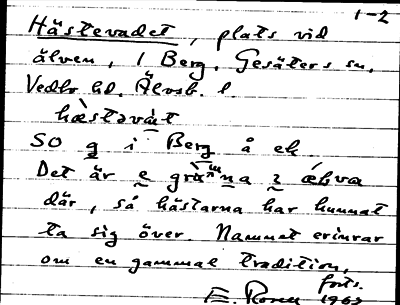 1-2
Hästevadet, plats vid
älven, i Berg. Gesäters sn,
Vedbo hd. Älvsb. l.
hæ̀stəvát
SO g i Berg å ek
Det är e gräna i æḷva
där, så hästarna har kunnat
ta sig över. Namnet erinrar
om en gammal tradition,
forts.
E. Rosen 1963